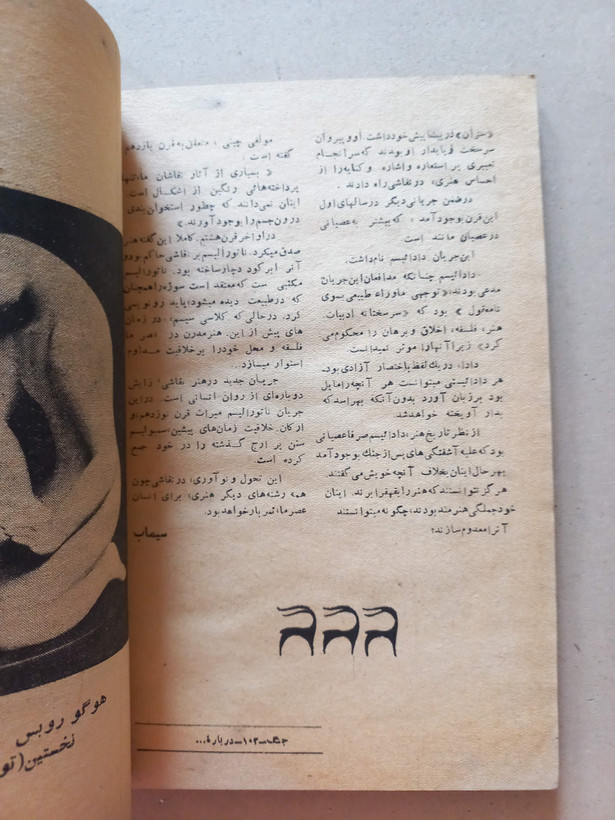 «سزان» در پیشاپیش خود داشت او و پیروان
سرسخت و پابدار او بودند که سرانجام
تعبیری بر استعاره و اشاره و کنایه را از
احساس هنری، در نقاشی راه دادند.
درضمن جریانی دیگر در سالهای اول
این قرن بوجود آمد، که بیشتر به عصیانی
در عصیان مانند است
این جریان دادائیسم نام داشت.
دادائیسم چنانکه مدافعان این جریان
مدعی بودند، «توجهی ماوراء طبیعی بسوی
نامعقول» بود که «سرسختانه ادبیات،
هنر، فلسفه، اخلاق و برهان را محکوم می
کرد» زیرا آنها را موثر نمیدانست.
دادا، در یک لفظ باختصار آزادی بود.
هر دادائیستی میتوانست هر آنچه را مایل
بود بر زبان آورد بدون آنکه بهراسد که
بدار آویخته خواهد شد.
از نظر تاریخ هنر، دادائیسم صرفا عصیانی
بود که علیه آشفتگی‌های پس از جنگ بوجود آمد
بهر حال اینان بخلاف آنچه خویش می گفتند.
هرگز نتوانستند که هنر را بقهقرا برند. اینان
خود جملگی هنرمند بودند، چگونه میتوانستند
آنرا معدوم سازند؛
مولفی چینی، متعلق به قرن یازدهم
گفته است:
« بسیاری از آثار نقاشان ما، تنها
پرداخته‌هائی رنگین از اشکال است.
اینان نمی‌دانند که چطور استخوان‌بندی
درون جسم را بوجود آورند»
در اواخر قرن هشتم، کاملا این گفته هنر
صدق میکرد. ناتورالیسم بر نقاشی حاکم بود و
آنرا برکود دچار ساخته بود. ناتورالیسم
مکتبی ست که معتقد است سوژه را همچنان
که در طبیعت دیده میشود، باید رونویسی
کرد. در حالی که کلاسی سیسم، در زمان
های پیش از این، هنر مدرن در عصر ما
فلسفه و محل خود را بر خلاقیت مداوم
استوار میسازد..
جریان جدید در هنر نقاشی، زایش
دوباره‌ای از روان انسانی است. در این
جریان ناتورالیسم میراث قرن نوزدهم، و
ارکان خلاقیت زمان‌های پیشین، سمبولیسم
سنن پر ارج گذشته را در خود جمع
کرده است
این تحول و نوآوری، در نقاشی چون
همه رشته‌های دیگر هنری، برای انسان
عصر ما، ثمر بار خواهد بود.
سیماب
جنگ-۱۰۲-درباره...
هوگو روبس
نخستین (تو